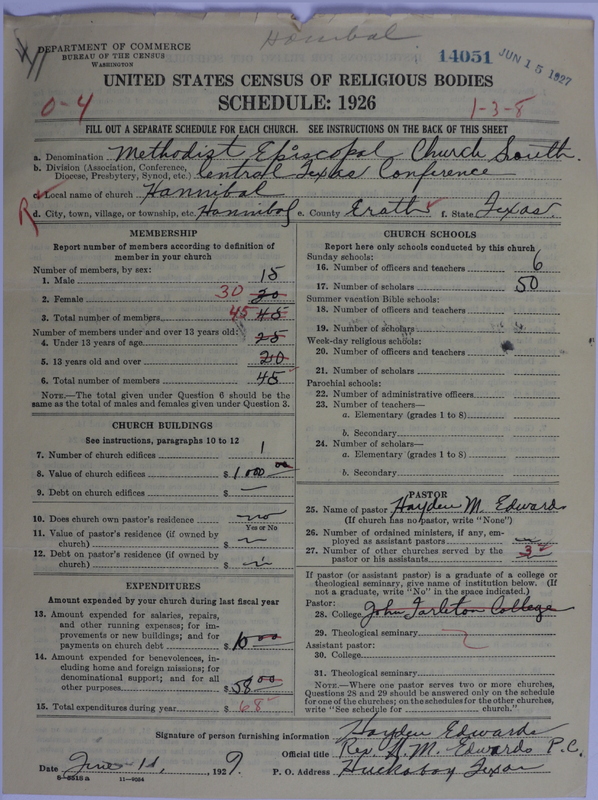 Hannibal
DEPARTMENT OF COMMERCE
BUREAU OF THE CENSUS
WASHINGTON
14051 JUN 15 1927
UNITED STATES CENSUS OF RELIGIOUS BODIES
SCHEDULE: 1926
0-4
1-3-8
FILL OUT A SEPARATE SCHEDULE FOR EACH CHURCH. SEE INSTRUCTIONS ON THE BACK OF THIS SHEET
a. Denomination Methodist Episcopal Church South.
b. Division (Association, Conference,
Diocese, Presbytery, Synod, etc.) Central Texas Conference
c. Local name of church Hannibal
d. City, town, village, or township, etc. Hannibal e. County Erath f. State Texas
MEMBERSHIP
Report number of members according to definition of
member in your church
Number of members, by sex:
1. Male 15
2. Female 30
3. Total number of members 45 45
Number of members under and over 13 years old:
4. Under 13 years of age 25
5. 13 years old and over 20
6. Total number of members 45
NOTE.—The total given under Question 6 should be
same as the total of males and females given under Question 3.
CHURCH BUILDINGS
See instructions, paragraphs 10 to 12
7. Number of church edifices 1
8. Value of church edifices $ 1000 00
9. Debt on church edifices $ —
10. Does church own pastor's residence no
Yes or No
11. Value of pastor's residence (if owned by
church) $
12. Debt on pastor's residence (if owned by
church) $
EXPENDITURES
Amount expended by your church during last fiscal year
13. Amount expended for salaries, repairs,
and other running expenses; for im-
provements or new buildings; and for
payments on church debt $ 10 00
14. Amount expended for benevolences, in-
cluding home and foreign missions; for
denominational support; and for all
other purposes $ 58 00
15. Total expenditures during year $ 68
CHURCH SCHOOLS
Report here only schools conducted by this church
Sunday schools:
16. Number of officers and teachers 6
17. Number of scholars 50
Summer vacation Bible schools:
18. Number of officers and teachers
19. Number of scholars
Week-day religious schools:
20. Number of officers and teachers
21. Number of scholars
Parochial schools:
22. Number of administrative officers
23. Number of teachers—
a. Elementary (grades 1 to 8)
b. Secondary
24. Number of scholars—
a. Elementary (grades 1 to 8)
b. Secondary
PASTOR
25. Name of pastor Hayden M. Edwards
(If church has no pastor, write "None")
26. Number of ordained ministers, if any, em-
ployed as assistant pastors
27. Number of other churches served by the
pastor or his assistants 3
If pastor (or assistant pastor) is a graduate of a college or
theological seminary, give name of institution below. (If
not a graduate, write "No" in the space indicated.)
Pastor:
28. College John Tarleton College
29. Theological seminary
Assistant pastor:
30. College
31. Theological seminary
NOTE.—Where one pastor serves two or more churches,
Questions 28 and 29 should be answered only on the schedule
for one of the churches; on the schedules for the other churches,
write "See schedule for church."
Signature of person furnishing information Hayden Edwards
Official title Rev. H. M. Edwards P.C.
Date June 11, 1927. P. O. Address Huckabay Texas
8-5518 a 11-9064